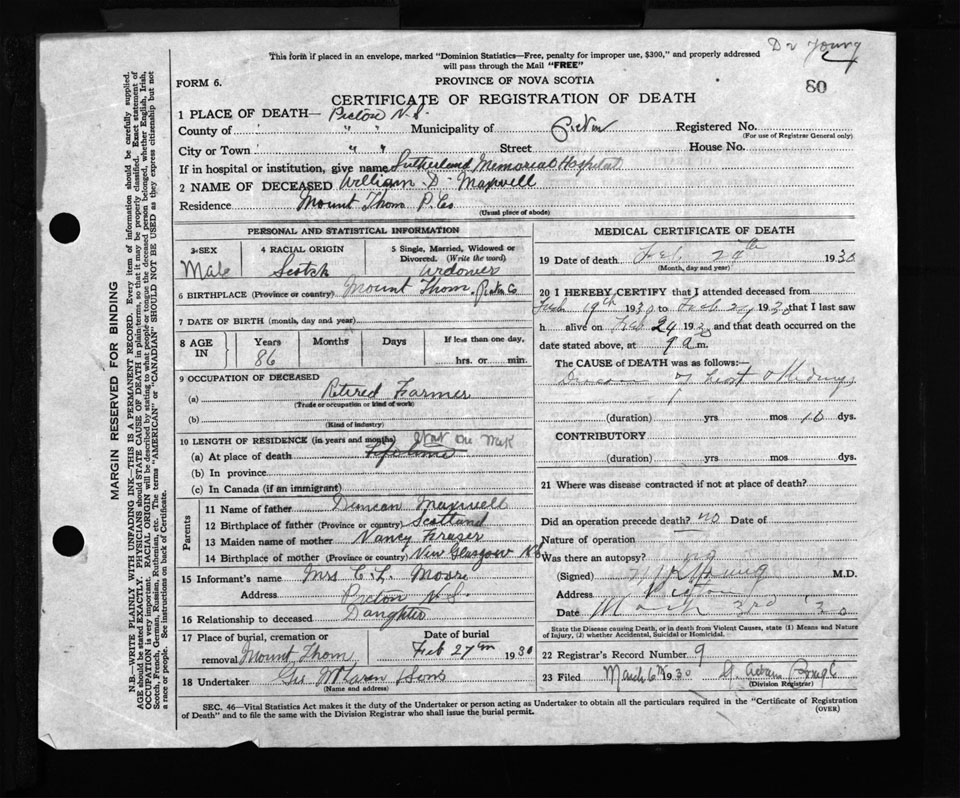 Dr Young
This form if placed in an envelope, marked "Dominion Statistics—Free, penalty for improper use, $300," and properly addressed
will pass through the Mail "FREE"
FORM 6.
PROVINCE OF NOVA SCOTIA
80
CERTIFICATE OF REGISTRATION OF DEATH
1 PLACE OF DEATH— Pictou N.S.
County of " " " Municipality of Pictou Registered No.
(For use of Registrar General only)
City or Town " " " Street House No.
If in hospital or institution, give name Sutherland Memorial Hospital
2 NAME OF DECEASED William D. Maxwell
Residence Mount Thom P. Co
(Usual place of abode)
PERSONAL AND STATISTICAL INFORMATION
3 SEX Male
4 RACIAL ORIGIN Scotch
5 Single, Married, Widowed or Divorced. (Write the word) Widower
6 BIRTHPLACE (Province or country) Mount Thom. Pictou Co
7 DATE OF BIRTH (month, day and year)
8 AGE IN Years 86 Months Days If less than one day, hrs. or min.
9 OCCUPATION OF DECEASED
(a) Retired Farmer
(Trade or occupation or kind of work)
(b)
(Kind of industry)
10 LENGTH OF RESIDENCE (in years and months)
(a) At place of death Lifetime One
(b) In province
(c) In Canada (if an immigrant)
Parents
11 Name of father Duncan Maxwell
12 Birthplace of father (Province or country) Scotland
13 Maiden name of mother Nancy Fraser
14 Birthplace of mother (Province or country) New Glasgow N.S.
15 Informant's name Mrs C. L. Moore
Address Pictou N.S.
16 Relationship to deceased Daughter
17 Place of burial, cremation or removal Mount Thom
Date of burial Feb 27th 1930
18 Undertaker Geo McLaren & Sons
(Name and address)
MEDICAL CERTIFICATE OF DEATH
19 Date of death Feb 24th 1930
(Month, day and year)
20 I HEREBY CERTIFY that I attended deceased from
Feb 19th 1930 to Feb 24 1930 that I last saw
h alive on Feb 24 1930 and that death occurred on the
date stated above, at 9 a m.
The CAUSE OF DEATH was as follows:—
Disease of heart & Kidneys
(duration) yrs mos 10 dys.
CONTRIBUTORY
(duration) yrs mos dys.
21 Where was disease contracted if not at place of death?
Did an operation precede death? no Date of
Nature of operation
Was there an autopsy? no
(Signed) Young M.D.
Address Pictou
Date March 3rd '30
State the Disease causing Death, or in death from Violent Causes, state (1) Means and Nature
of Injury, (2) whether Accidental, Suicidal or Homicidal.
22 Registrar's Record Number 9
23 Filed March 6th 1930
(Division Registrar)
SEC. 46—Vital Statistics Act makes it the duty of the Undertaker or person acting as Undertaker to obtain all the particulars required in the "Certificate of Registration
of Death" and to file the same with the Division Registrar who shall issue the burial permit.
(OVER)
MARGIN RESERVED FOR BINDING
N.B.—WRITE PLAINLY WITH UNFADING INK—THIS IS A PERMANENT RECORD. Every item of information should be carefully supplied.
AGE should be stated EXACTLY. PHYSICIANS should STATE CAUSE OF DEATH in plain terms, so that it may be properly classified. Exact statement of
OCCUPATION is very important. RACIAL ORIGIN will be described by stating to what people or tongue the deceased person belonged, whether English, Irish,
Scotch, French, German, Russian, Ruthenian, etc. The terms "AMERICAN" or "CANADIAN" SHOULD NOT BE USED as they express citizenship but not
a race or people. See instructions on back of Certificate.